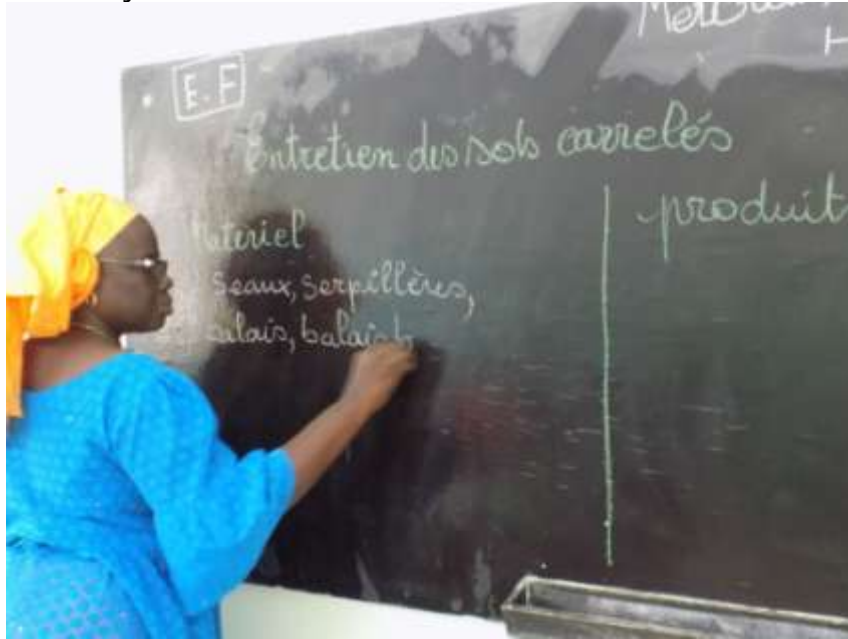 E.F
Entretien des sols carrelés
Matériel
produit
Seaux, serpillères,
balais, balais b